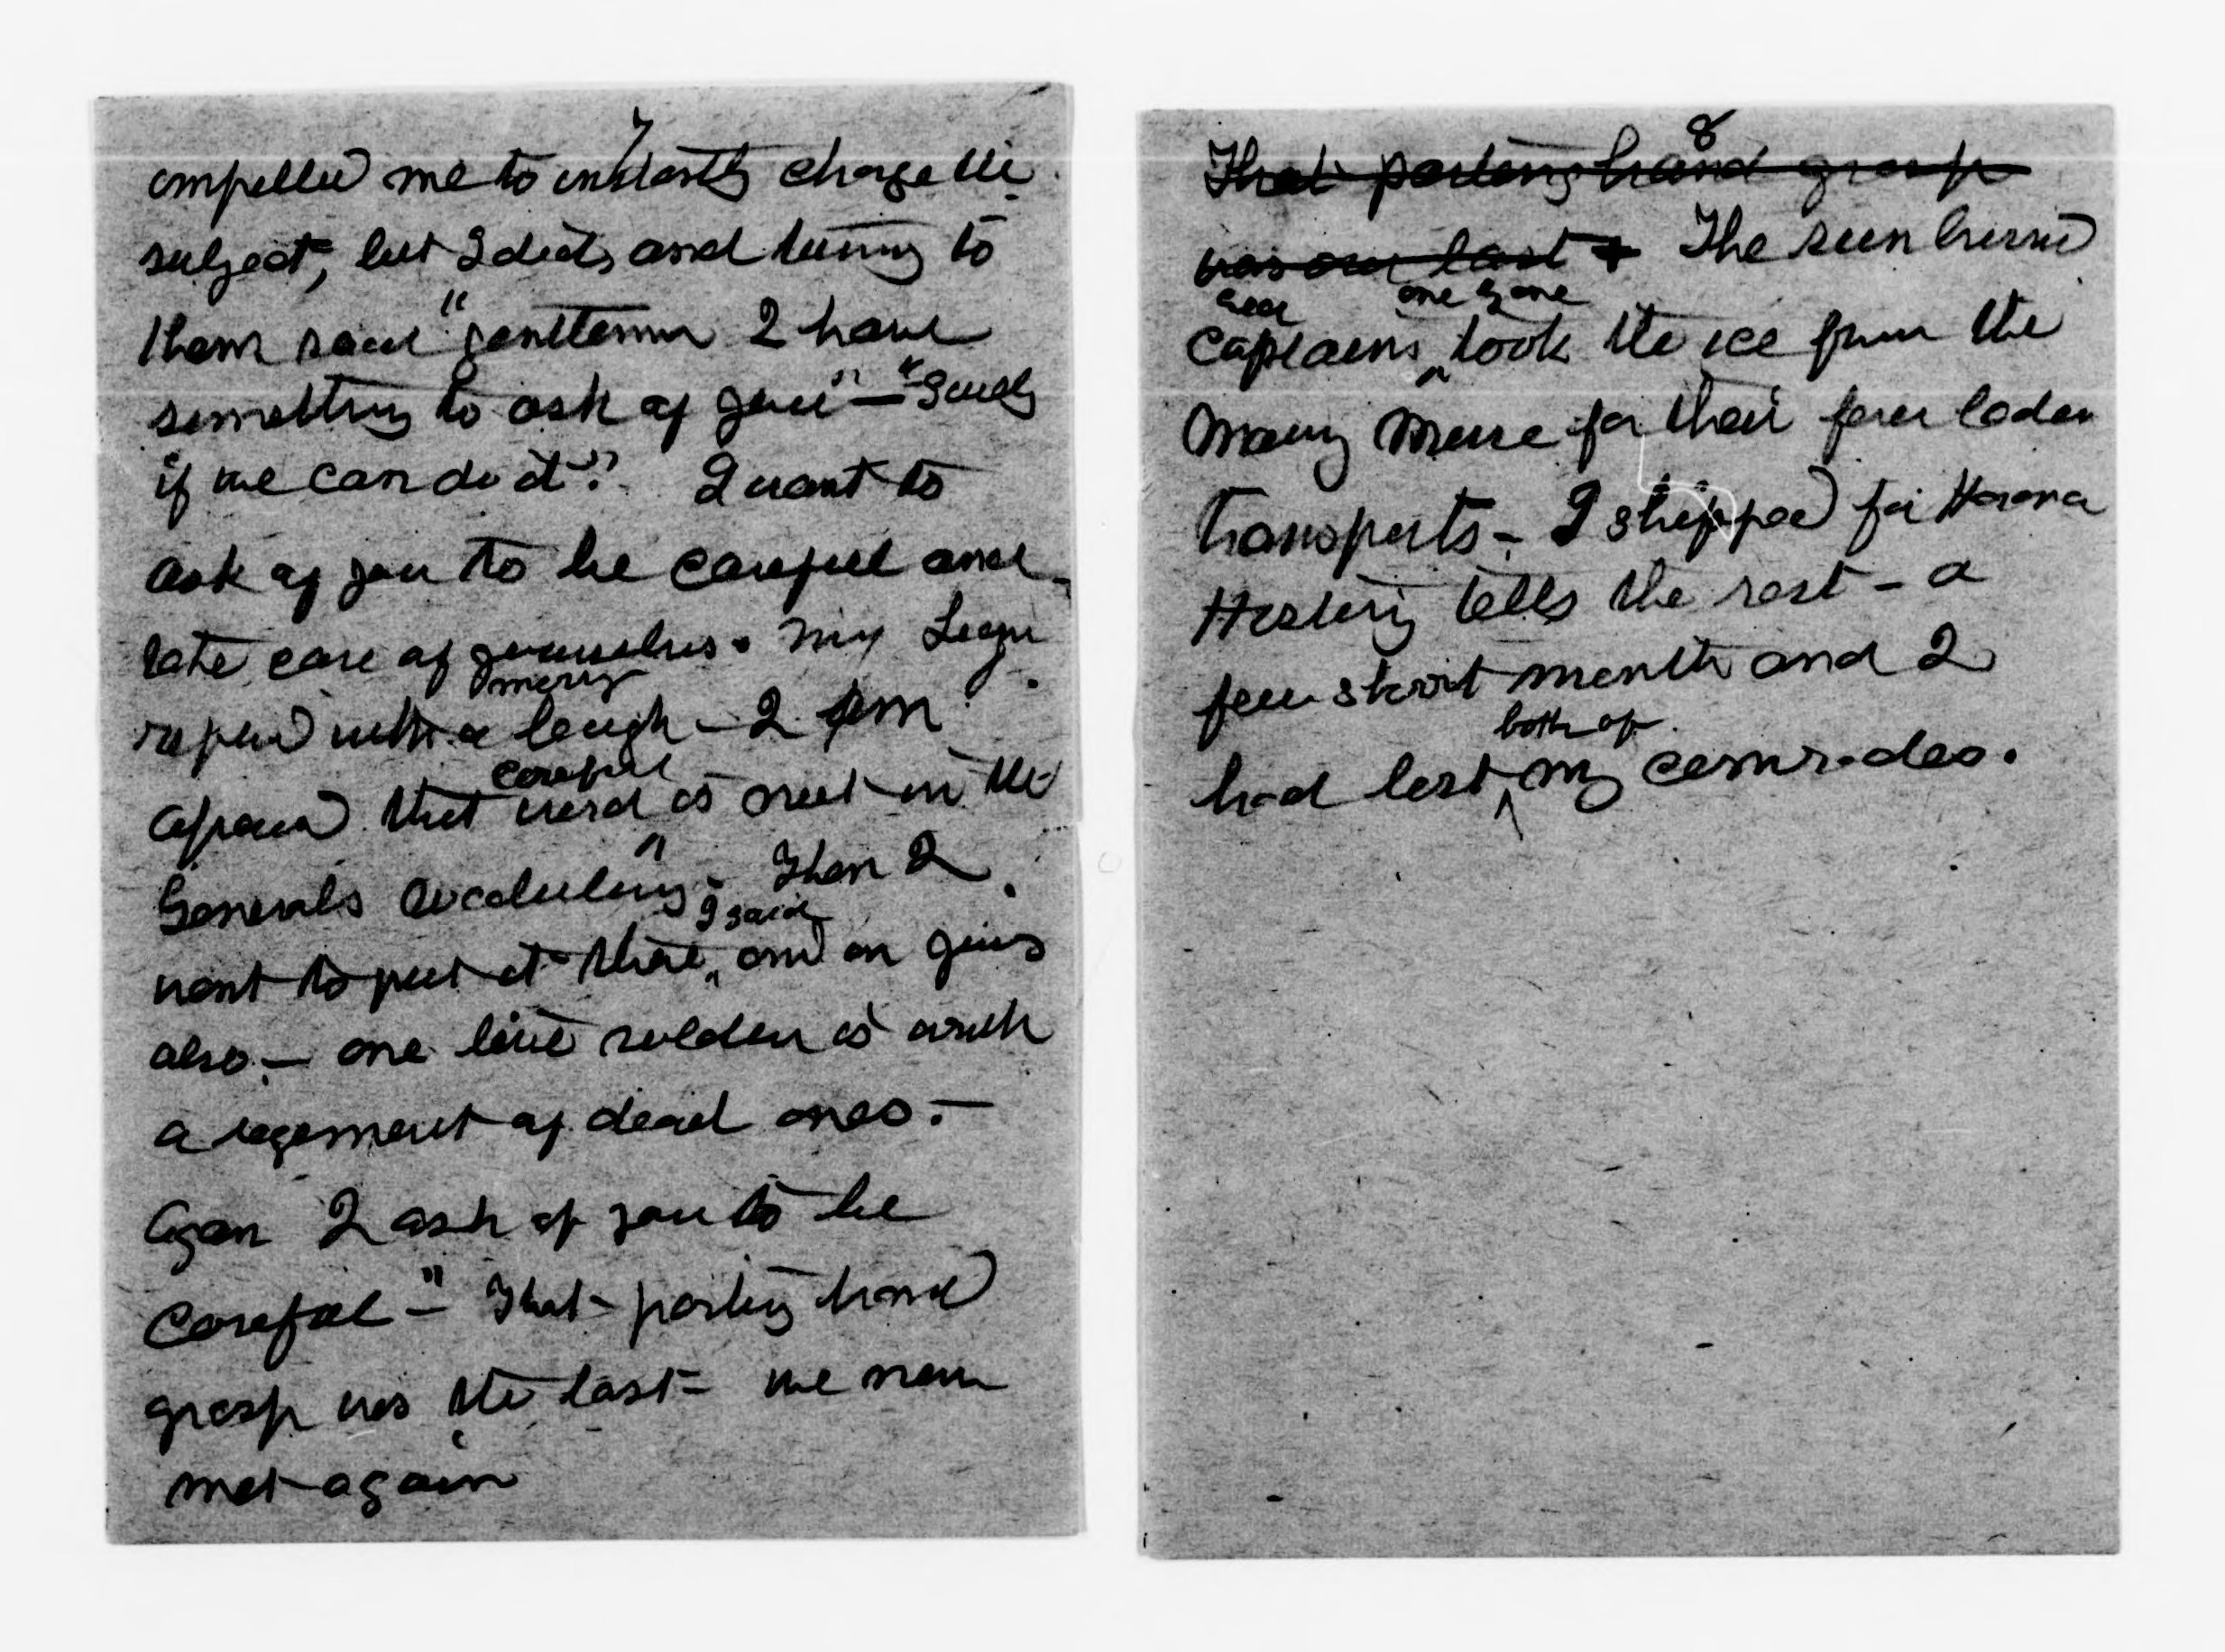 7
impelled me to instantly change the
subject, but I did, and turning to
them said "gentlemen I have
something to ask of you" — "Surely
if we can do it". I want to
ask of you to be careful and
take care of yourselves. My
merry
replied with a laugh — I am
careful
afraid that word is not in the
Generals vocabulary" - Then I
I said
want to put it there, and on yours
also. — one live soldier is worth
a regement of dead ones. —
Again I ask of you to be
Careful —" That parting hand
grasp was the last — we never
met again
8
That parting hand grasp
was our last + The sun burned
one by one
Captains took the ice from the
Mary for their fever laden
transports — I shipped for Havana
History tells the rest — a
few short months and I
both of
had lost my comrades.